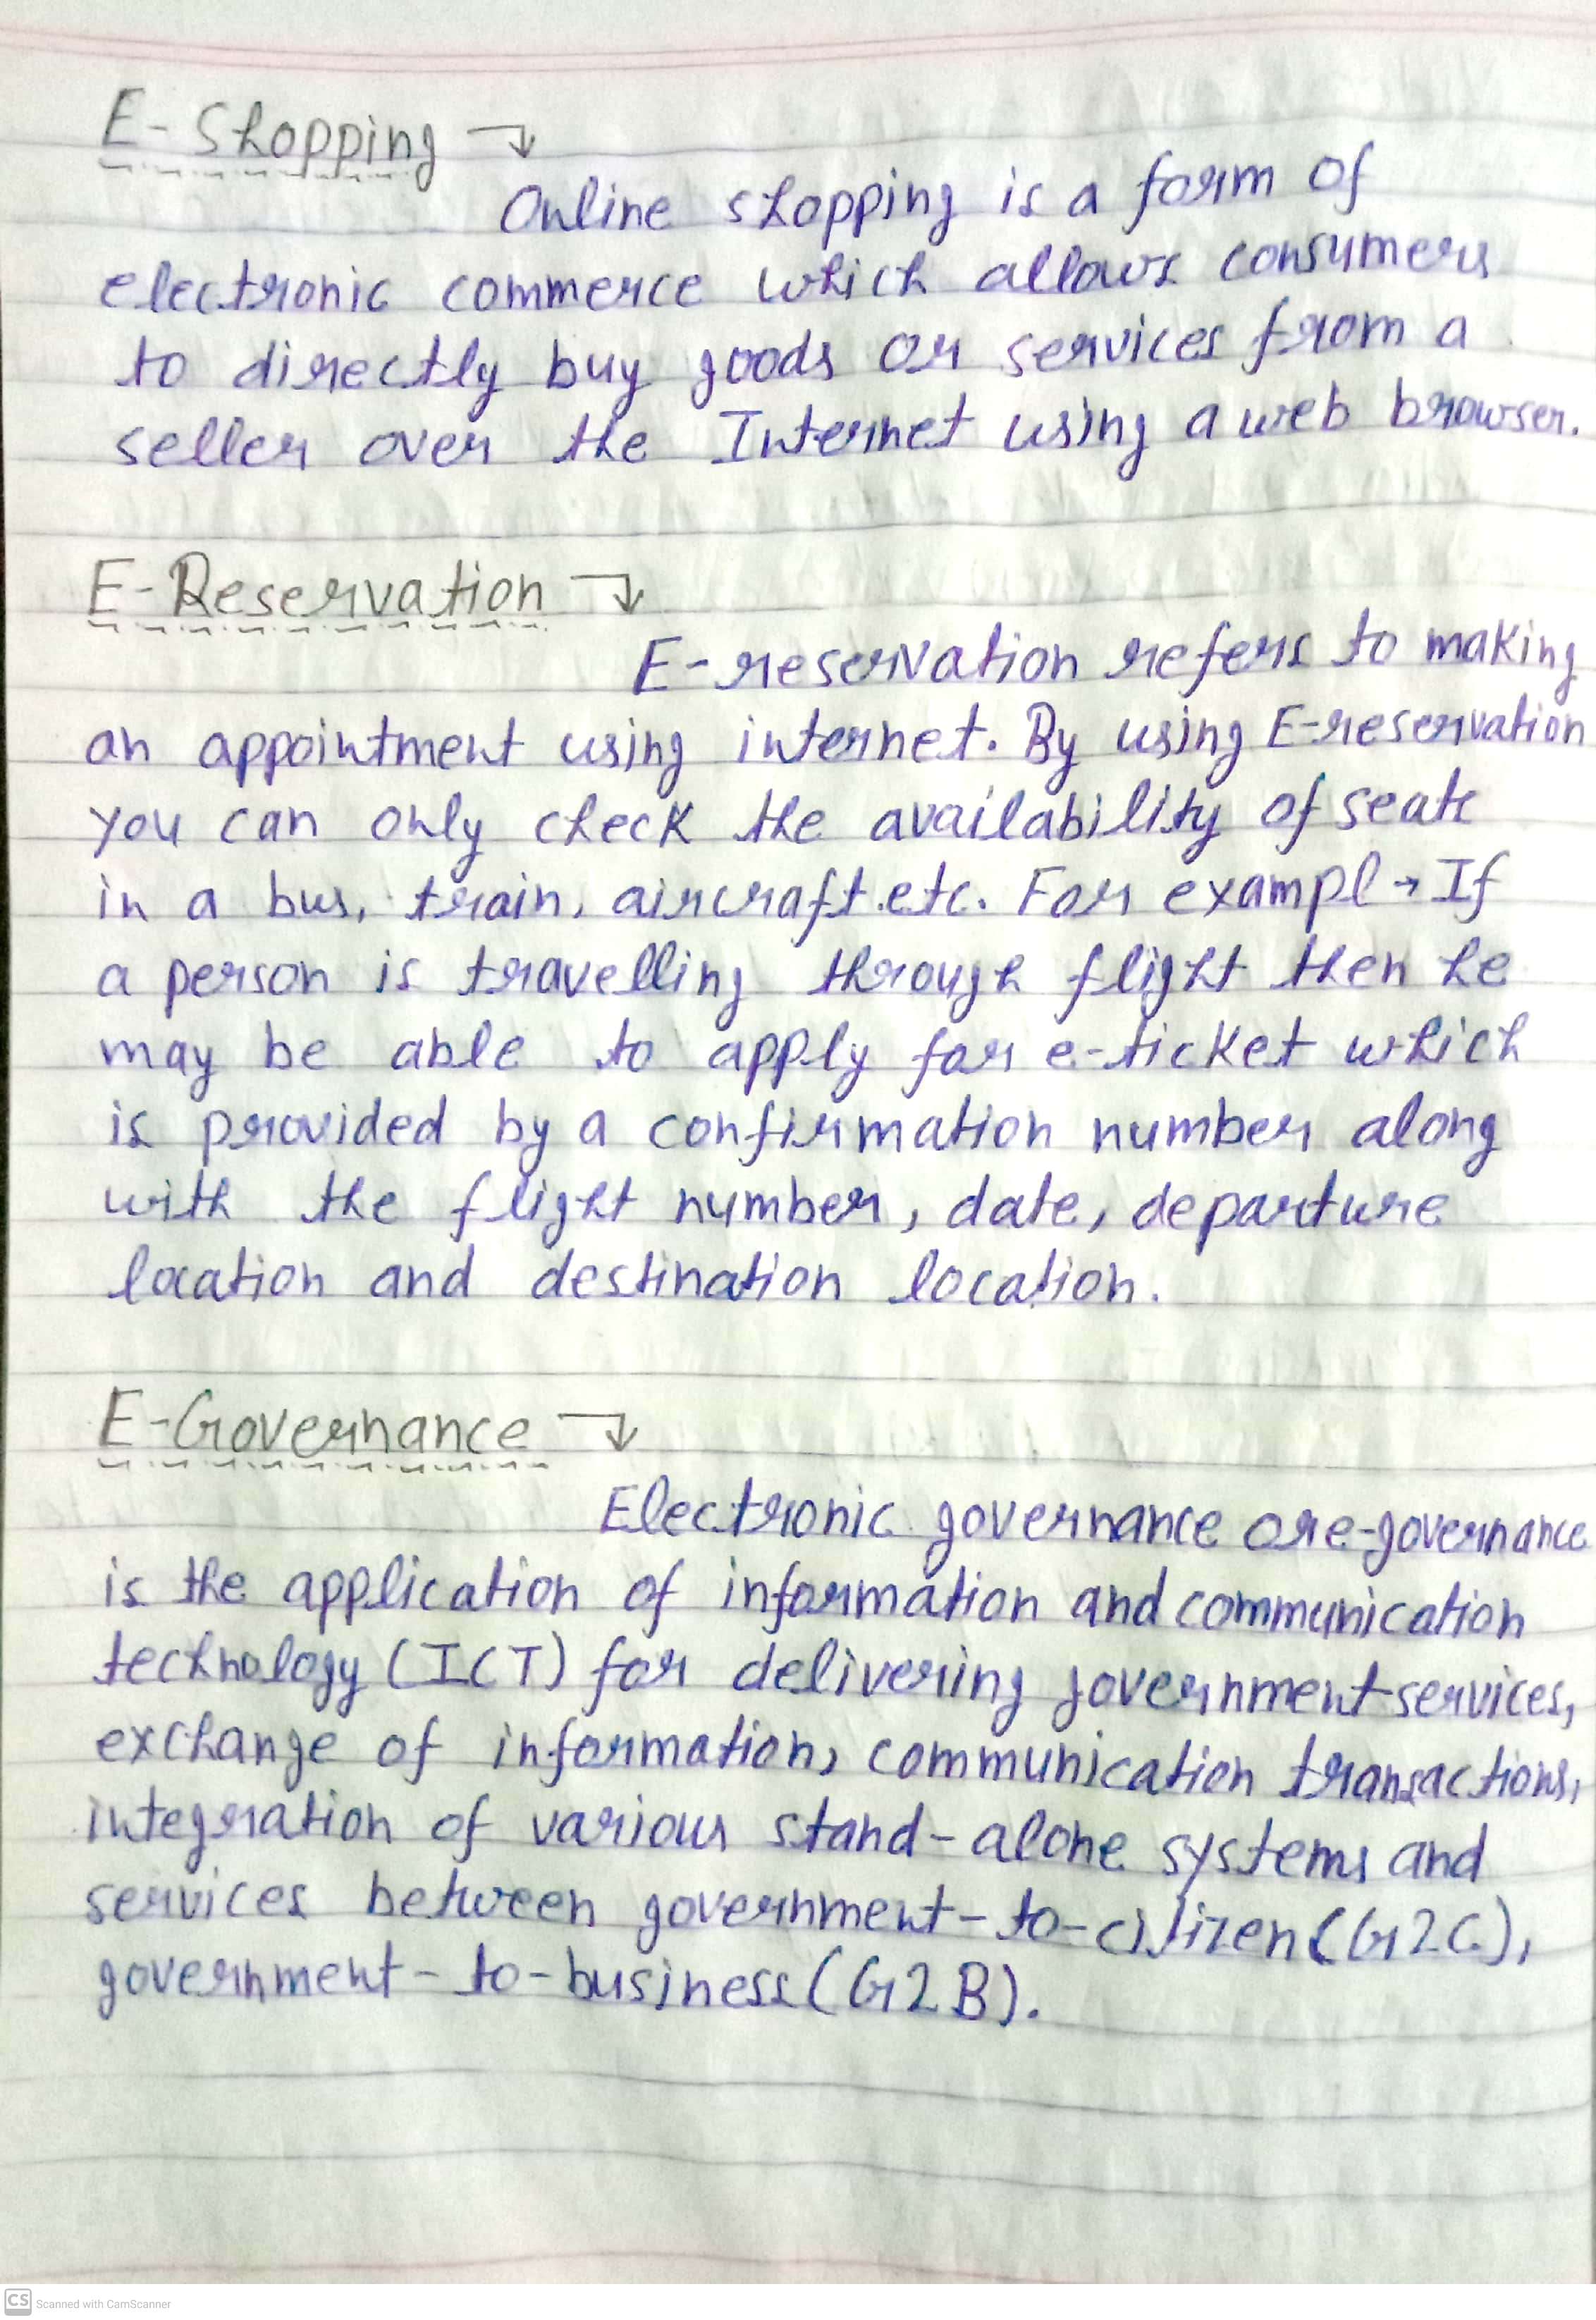 E-Shopping →
Online shopping is a form of
electronic commerce which allows consumers
to directly buy goods or services from a
seller over the Internet using a web browser.
E-Reservation →
E-reservation refers to making
an appointment using internet. By using E-reservation
you can only check the availability of seats
in a bus, train, aircraft etc. For exampl → If
a person is travelling through flight then he
may be able to apply for e-ticket which
is provided by a confirmation number along
with the flight number, date, departure
location and destination location.
E-Governance →
Electronic governance or e-governance
is the application of information and communication
technology (ICT) for delivering government services,
exchange of information, communication transactions,
integration of various stand-alone systems and
services between government-to-citizen (G2C),
government-to-business (G2B).
CS Scanned with CamScanner